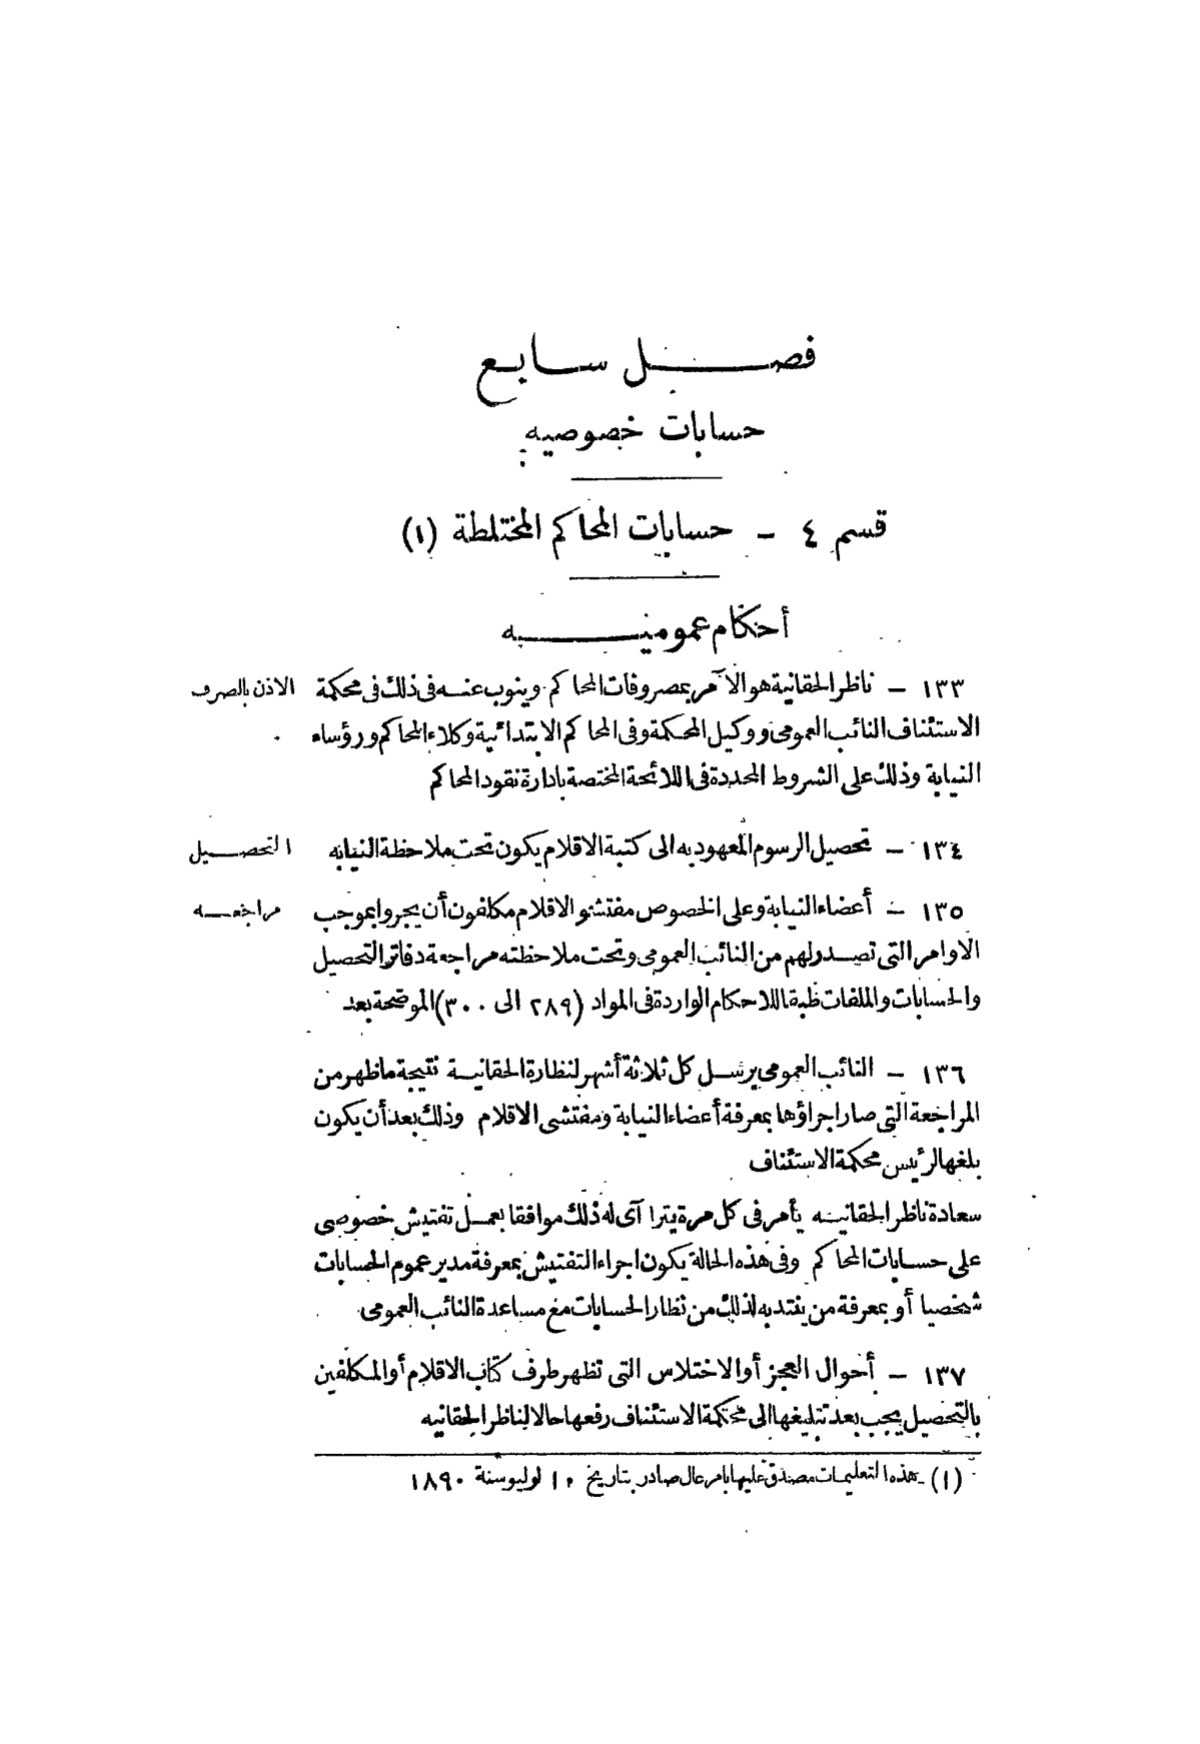 فصل سابع
حسابات خصوصيه
قسم ٤ - حسابات المحاكم المختلطة (١)
أحكام عموميه
١٣٣ - ناظر الحقانية هو الآمر بمصروفات المحاكم وينوب عنه في ذلك في محكمة
الاذن بالصرف
الاستئناف النائب العمومى ووكيل المحكمة وفى المحاكم الابتدائية وكلاء المحاكم ورؤساء
النيابة وذلك على الشروط المحددة فى اللائحة المختصة بادارة نقود المحاكم
١٣٤ - تحصيل الرسوم المعهود به الى كتبة الاقلام يكون تحت ملاحظة النيابه
التحصيل
١٣٥ - أعضاء النيابة وعلى الخصوص مفتشو الاقلام مكلفون أن يجروا بموجب
مراجعه
الاوامر التى تصدر لهم من النائب العمومى وتحت ملاحظته مراجعة دفاتر التحصيل
والحسابات والملفات طبقا للاحكام الواردة فى المواد (٢٨٩ الى ٣٠٠) الموضحة بعد
١٣٦ - النائب العمومى يرسل كل ثلاثة أشهر لنظارة الحقانية نتيجة ما ظهر من
المراجعة التى صار اجراؤها بمعرفة أعضاء النيابة ومفتشى الاقلام وذلك بعد أن يكون
بلغها لرئيس محكمة الاستئناف
سعادة ناظر الحقانيه يأمر فى كل مرة يتراآى له ذلك موافقا بعمل تفتيش خصوصى
على حسابات المحاكم وفى هذه الحالة يكون اجراء التفتيش بمعرفة مدير عموم الحسابات
شخصيا أو بمعرفة من ينتدبه لذلك من نظار الحسابات مع مساعدة النائب العمومى
١٣٧ - أحوال العجز أو الاختلاس التى تظهر طرف كتاب الاقلام أو المكلفين
بالتحصيل يجب بعد تبليغها الى محكمة الاستئناف رفعها حالا لناظر الحقانيه
(١) - هذه التعليمات مصدق عليها بامر عال صادر بتاريخ ١٠ لوليو سنة ١٨٩٠